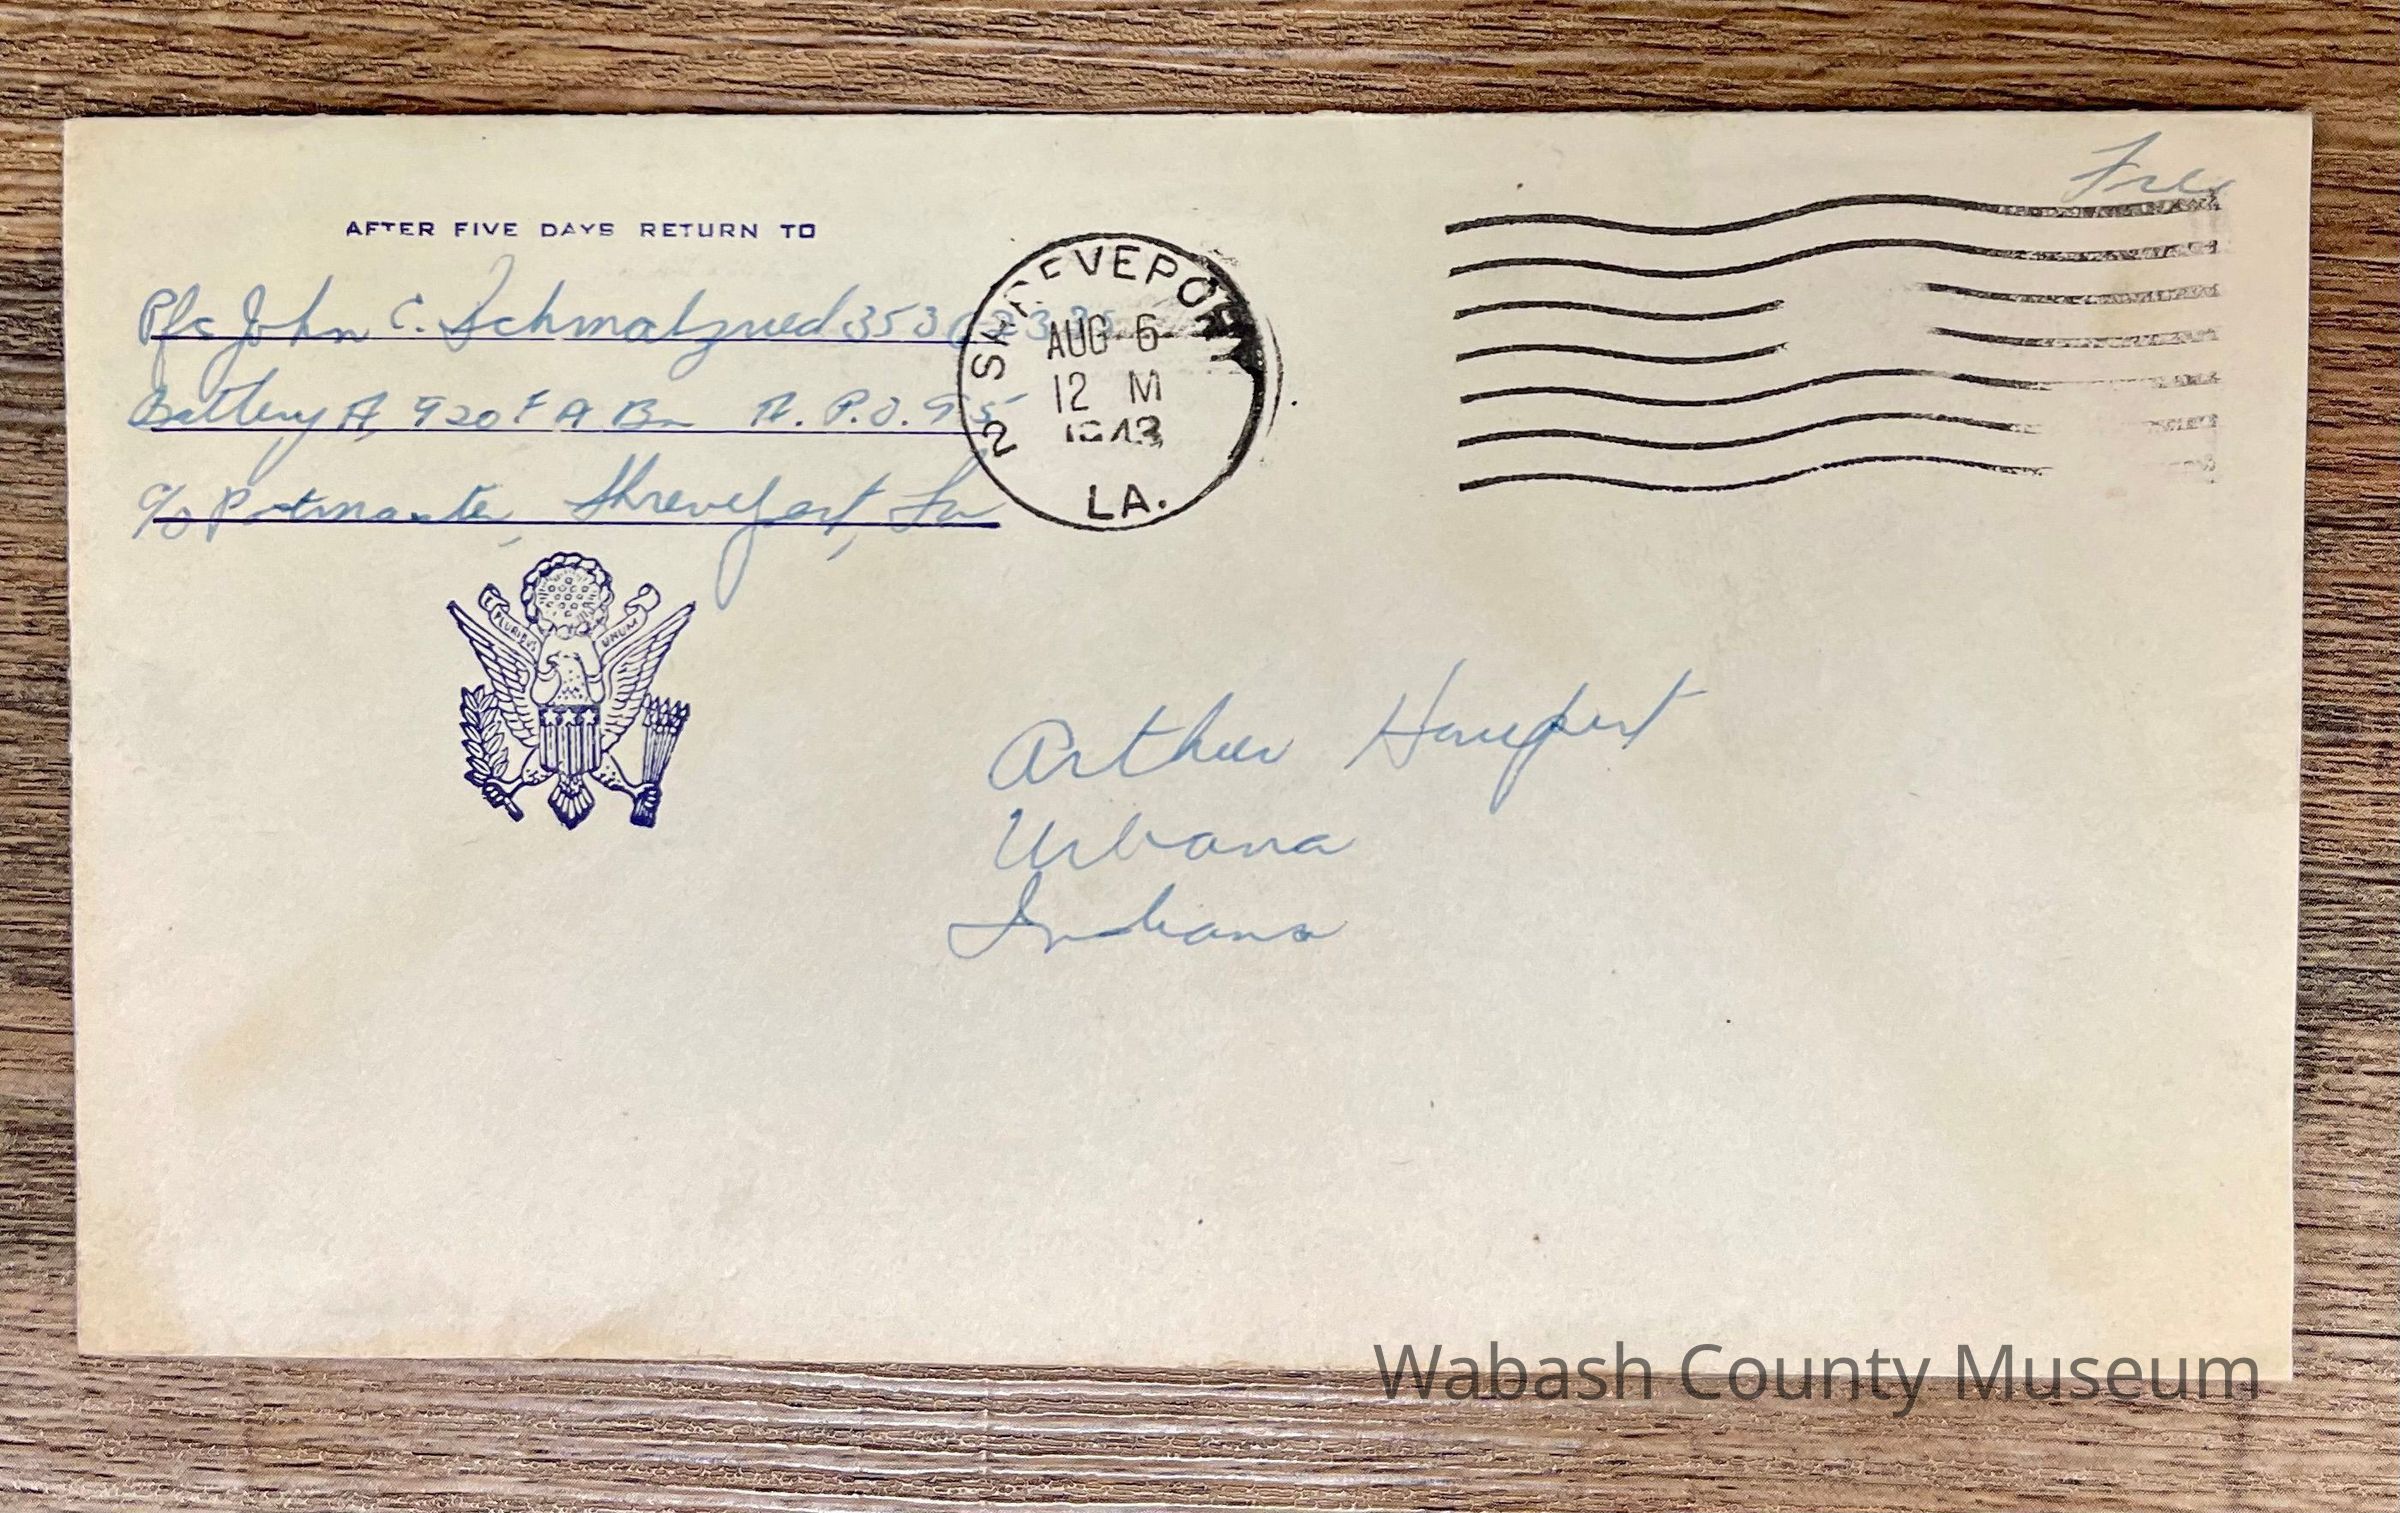 Free
AFTER FIVE DAYS RETURN TO
Pfc John C. Schmalzried 353
Battery A, 920 F A Bn A. P. O. 95
c/o Postmaster, Shreveport, La
2 SHREVEPORT
AUG 6
12 M
1943
LA.
PLURIBUS UNUM
Arthur Haupert
Urbana
Indiana
Wabash County Museum